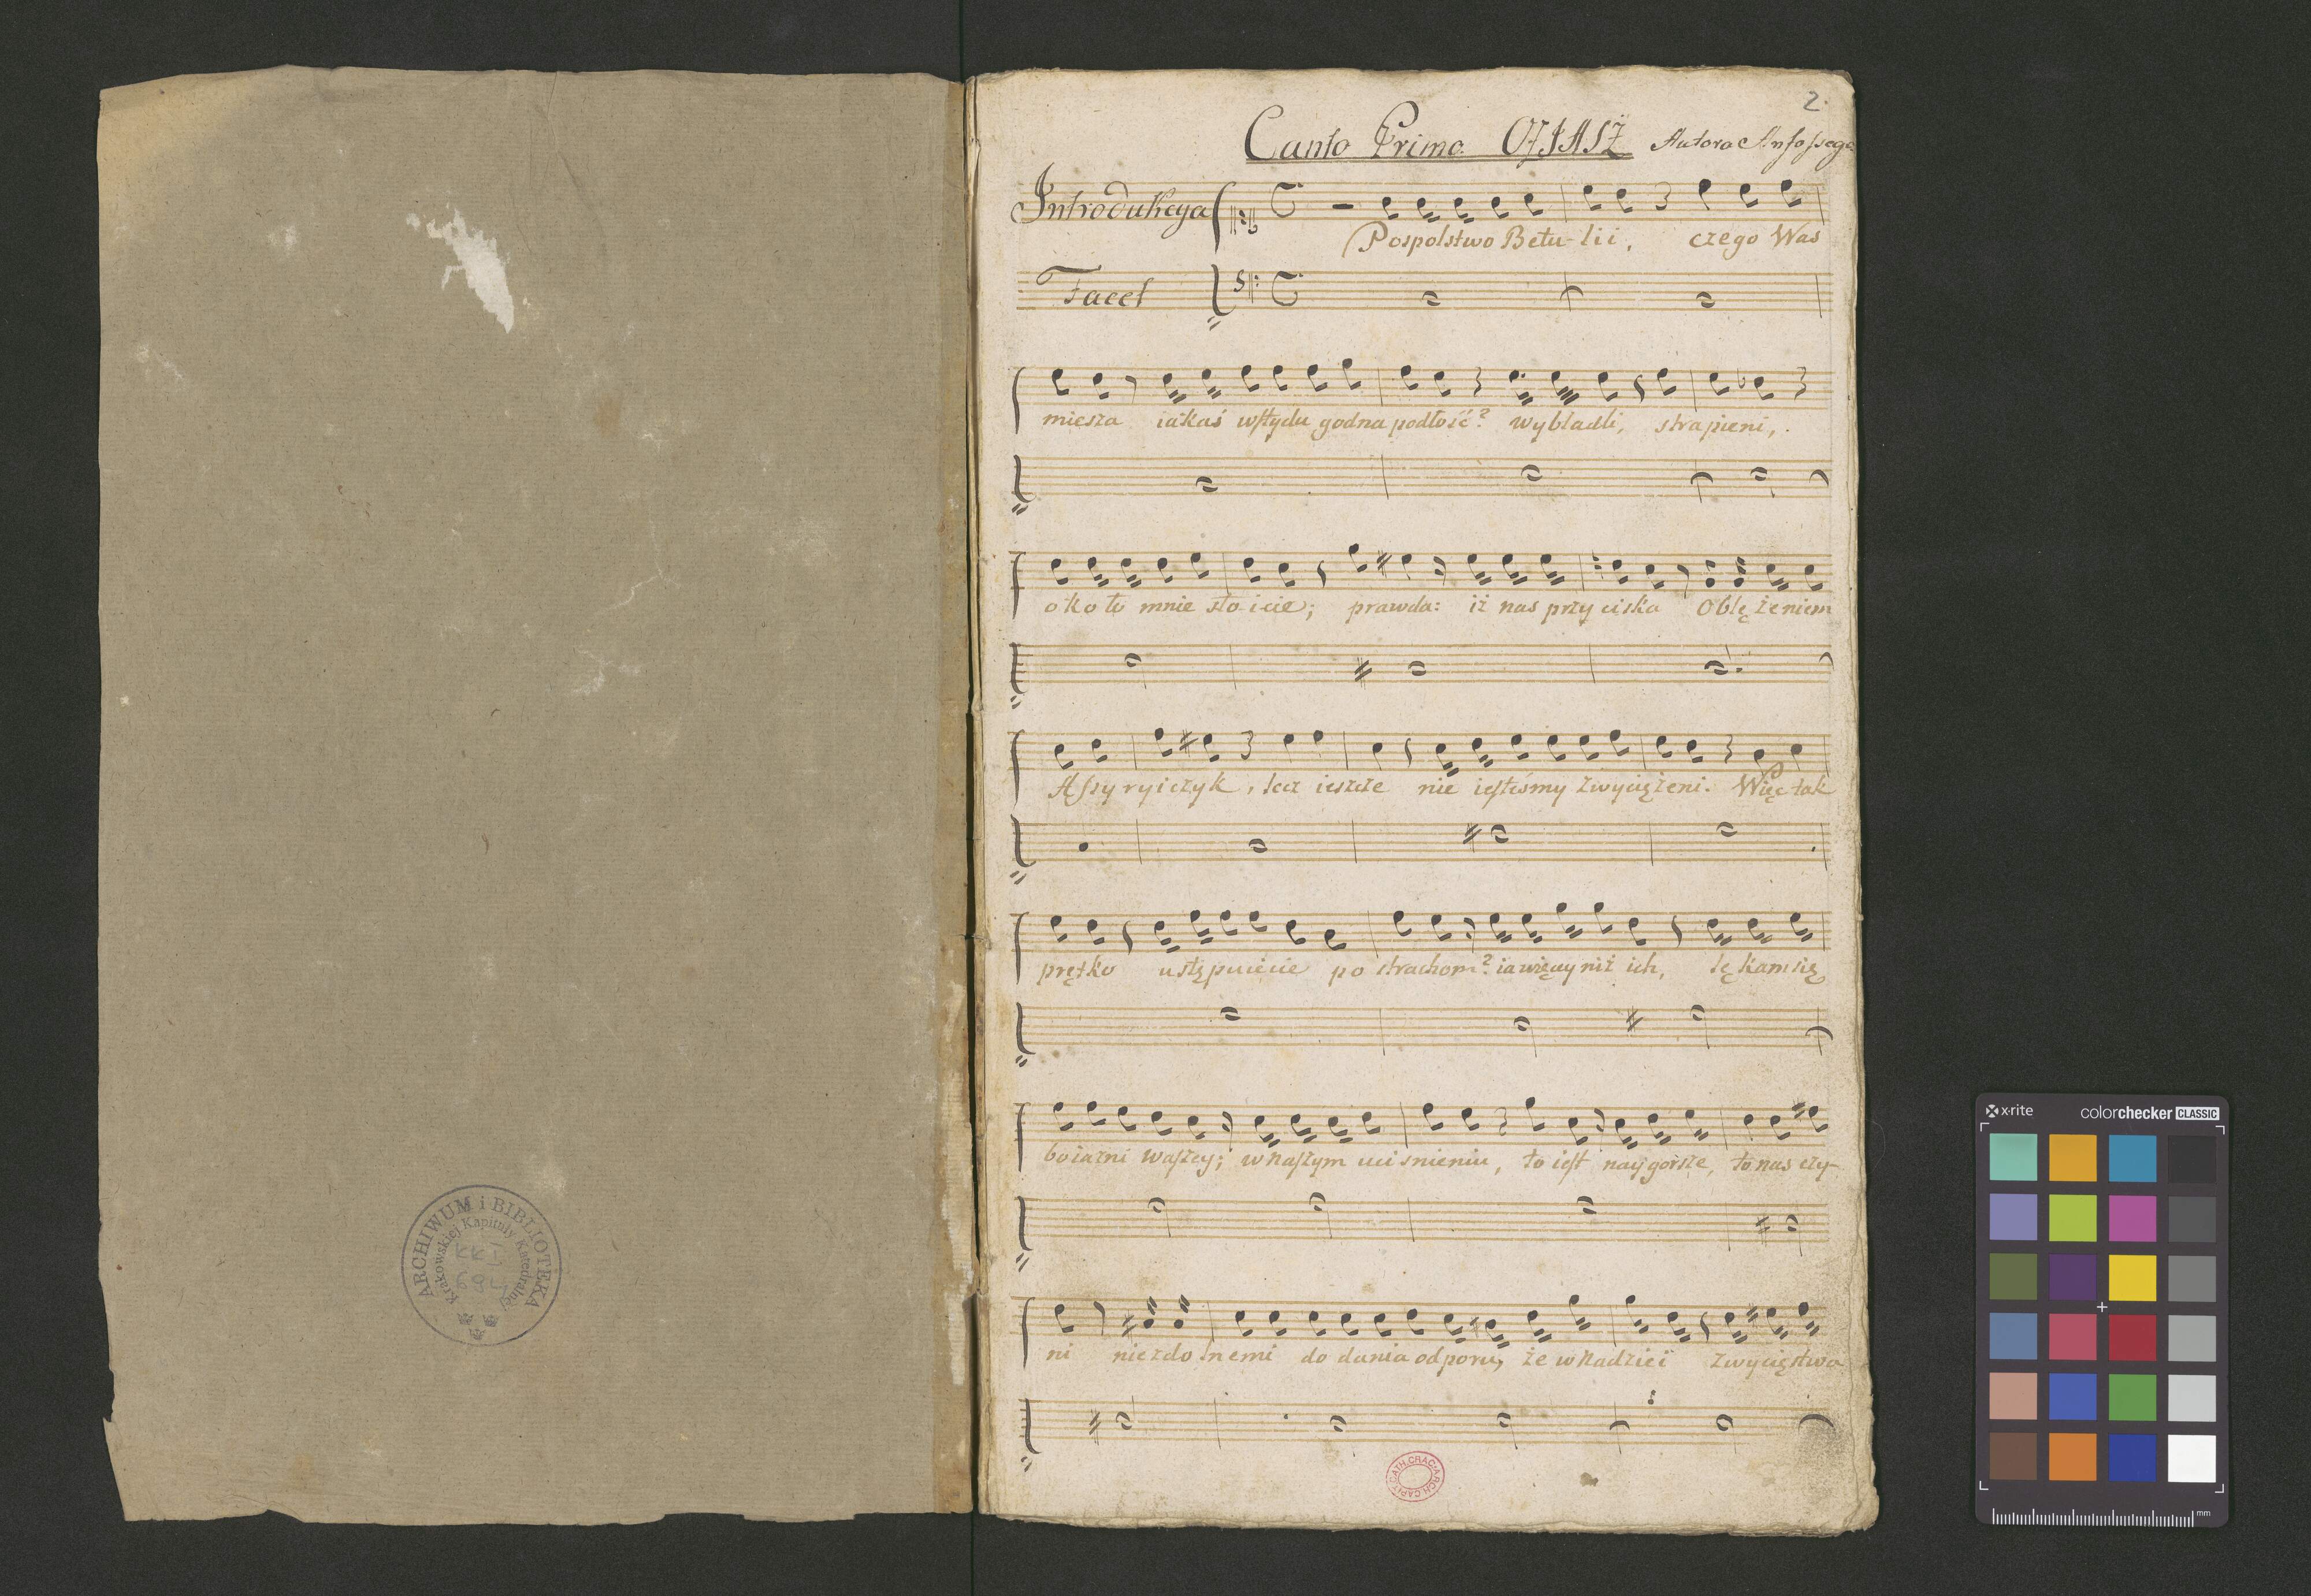 2.
Canto Primo OZIASZ Autora Anfossego
Introdukcya
Pospolstwo Betu-lii, czego Was
Tacet
miesza iakaś wstydu godna podłość? wybladli, strapieni,
około mnie stoicie; prawda: iż nas przyciska Oblężeniem
Assyryiczyk, lecz ieszcze nie iesteśmy zwyciężeni. Więc tak
prętko ustępuiecie po strachom? ia więcey niż ich, lękam się
boiazni waszey; w naszym uciśnieniu, to iest naygorsze, to nas czy-
ni niezdolnemi do dania odporu, że w nadziei zwycięstwa
ARCHIWUM i BIBLIOTEKA
Krakowskiej Kapituły Katedralnej
KKI
CATH. CRAC. ARCH. CAPIT.
x-rite colorchecker CLASSIC
mm